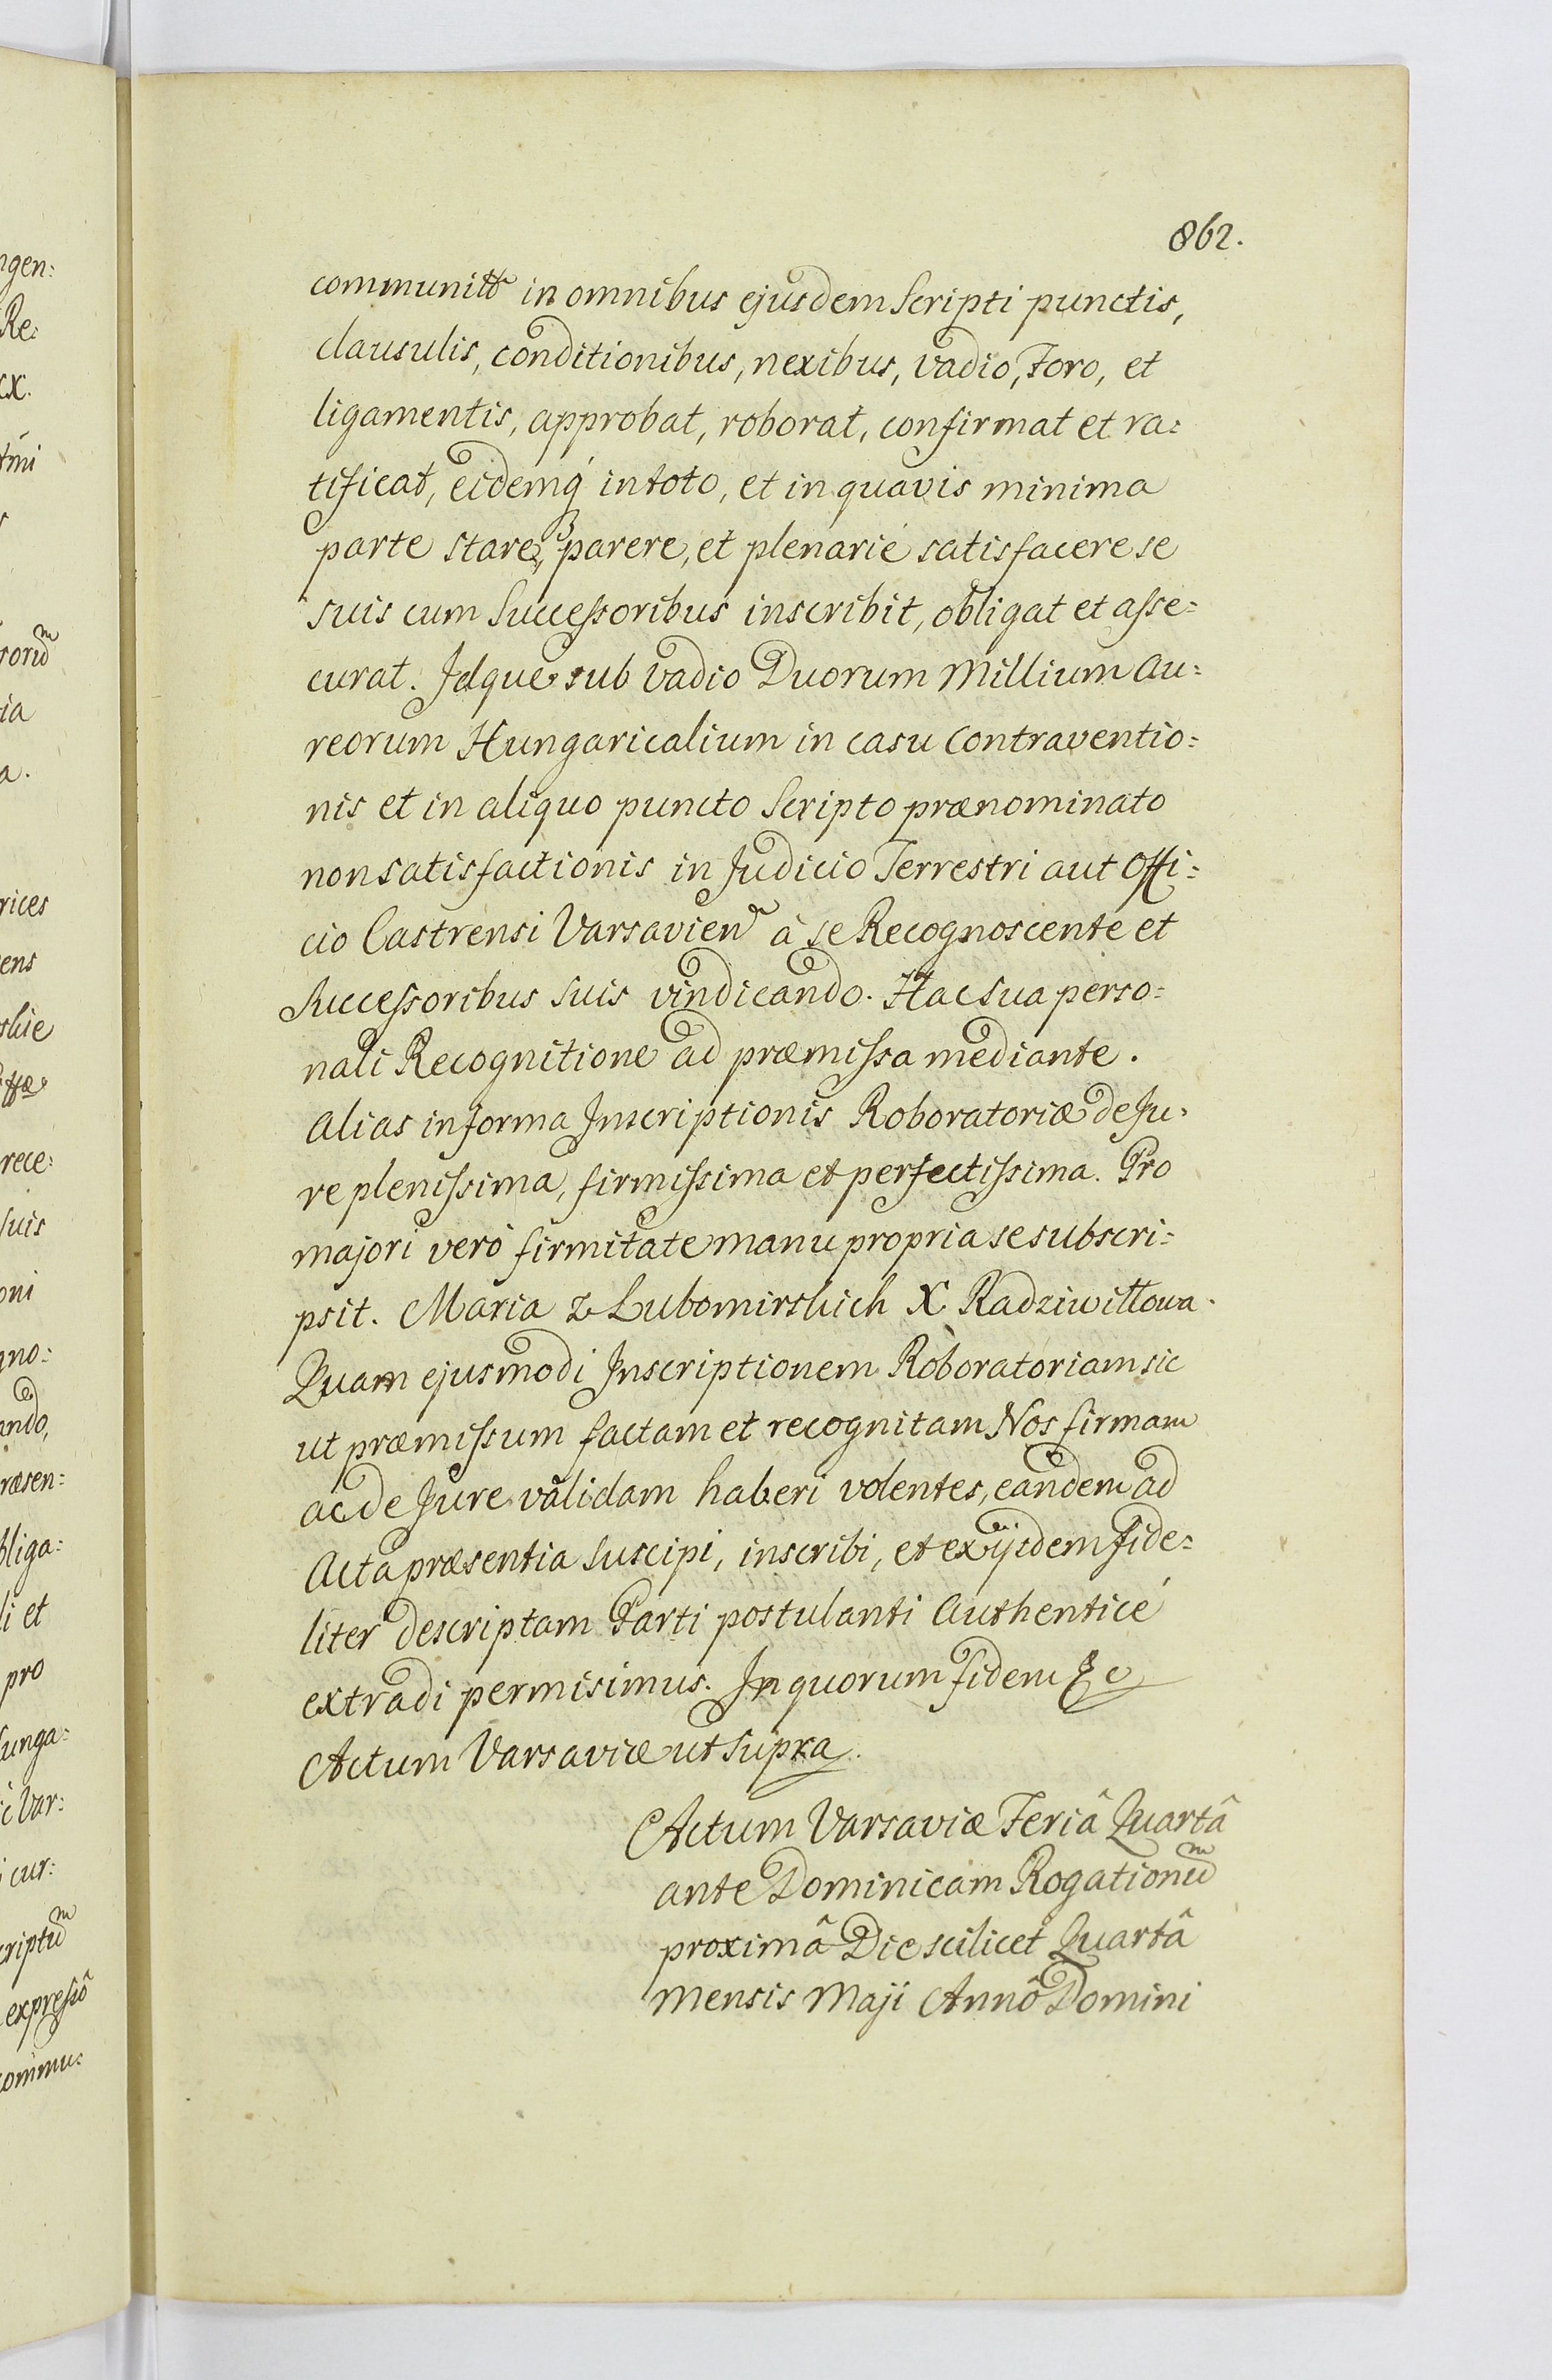 862.
communitt in omnibus ejusdem Scripti punctis,
clausulis, conditionibus, nexibus, vadio, Foro, et
ligamentis, approbat, roborat, confirmat et ra:
tificat, eidemq́ in toto, et in quavis minima
parte stare, parere, et plenarié satisfacere se
suis cum Successoribus inscribit, obligat et asse:
curat. Idque sub Vadio Duorum Millium Au:
reorum Hungaricalium in casu Contraventio:
nis et in aliquo puncto Scripto prænominato
non satisfactionis in Judicio Terrestri aut Offi:
cio Castrensi Varsavien à se Recognoscente et
Successoribus suis vindicando. Hac Sua perso:
nali Recognitione ad præmissa mediante.
Alias in forma Inscriptionis Roboratoriæ de Ju:
re plenissima, firmissima et perfectissima. Pro
majori veró firmitate manu propria se subscri:
psit. Maria z Lubomirskich X Radziwiłłowa.
Quam ejusmodi Inscriptionem Roboratoriam sic
ut præmissum factam et recognitam Nos firmam
ac de Jure validam haberi volentes, eandem ad
Acta præsentia suscipi, inscribi, et ex ijsdem fide:
liter descriptam Parti postulanti Authenticé
extradi permisimus. In quorum fidem &c
Actum Varsaviæ ut Supra.
Actum Varsaviæ Feriâ Quartâ
ante Dominicam Rogationũ
proximâ Die scilicet Quartâ
Mensis Maji Annô Domini
ngen:
Re:
xx.
tmi
ia
a.
rices
ens
skie
rece:
suis
oni
gno:
ando,
ræsen:
bliga:
li et
pro
unga:
Var:
cur:
criptũ
expressô
commu: